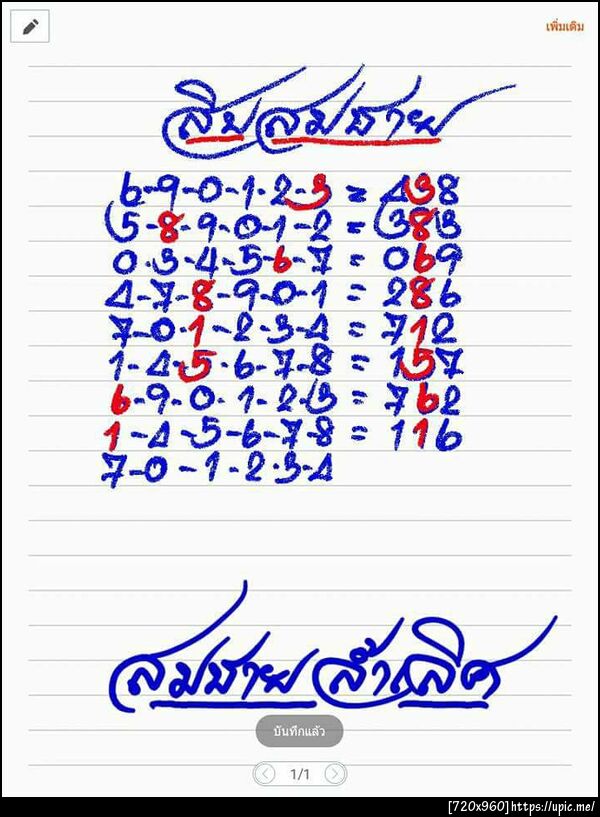 เพิ่มเติม
สิบสมชาย
6-9-0-1-2-3 = 438
5-8-9-0-1-2 = 383
0-3-4-5-6-7 = 069
4-7-8-9-0-1 = 286
7-0-1-2-3-4 = 712
1-4-5-6-7-8 = 157
6-9-0-1-2-3 = 762
1-4-5-6-7-8 = 116
7-0-1-2-3-4
สมชาย
บันทึกแล้ว
1/1
[720x960]https://upic.me/